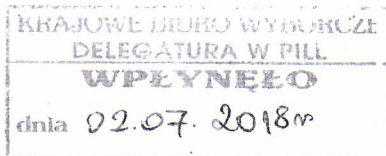 KRAJOWE BIURO WYBORCZE
DELEGATURA W PILE
WPŁYNĘŁO
dnia 02.07.2018r